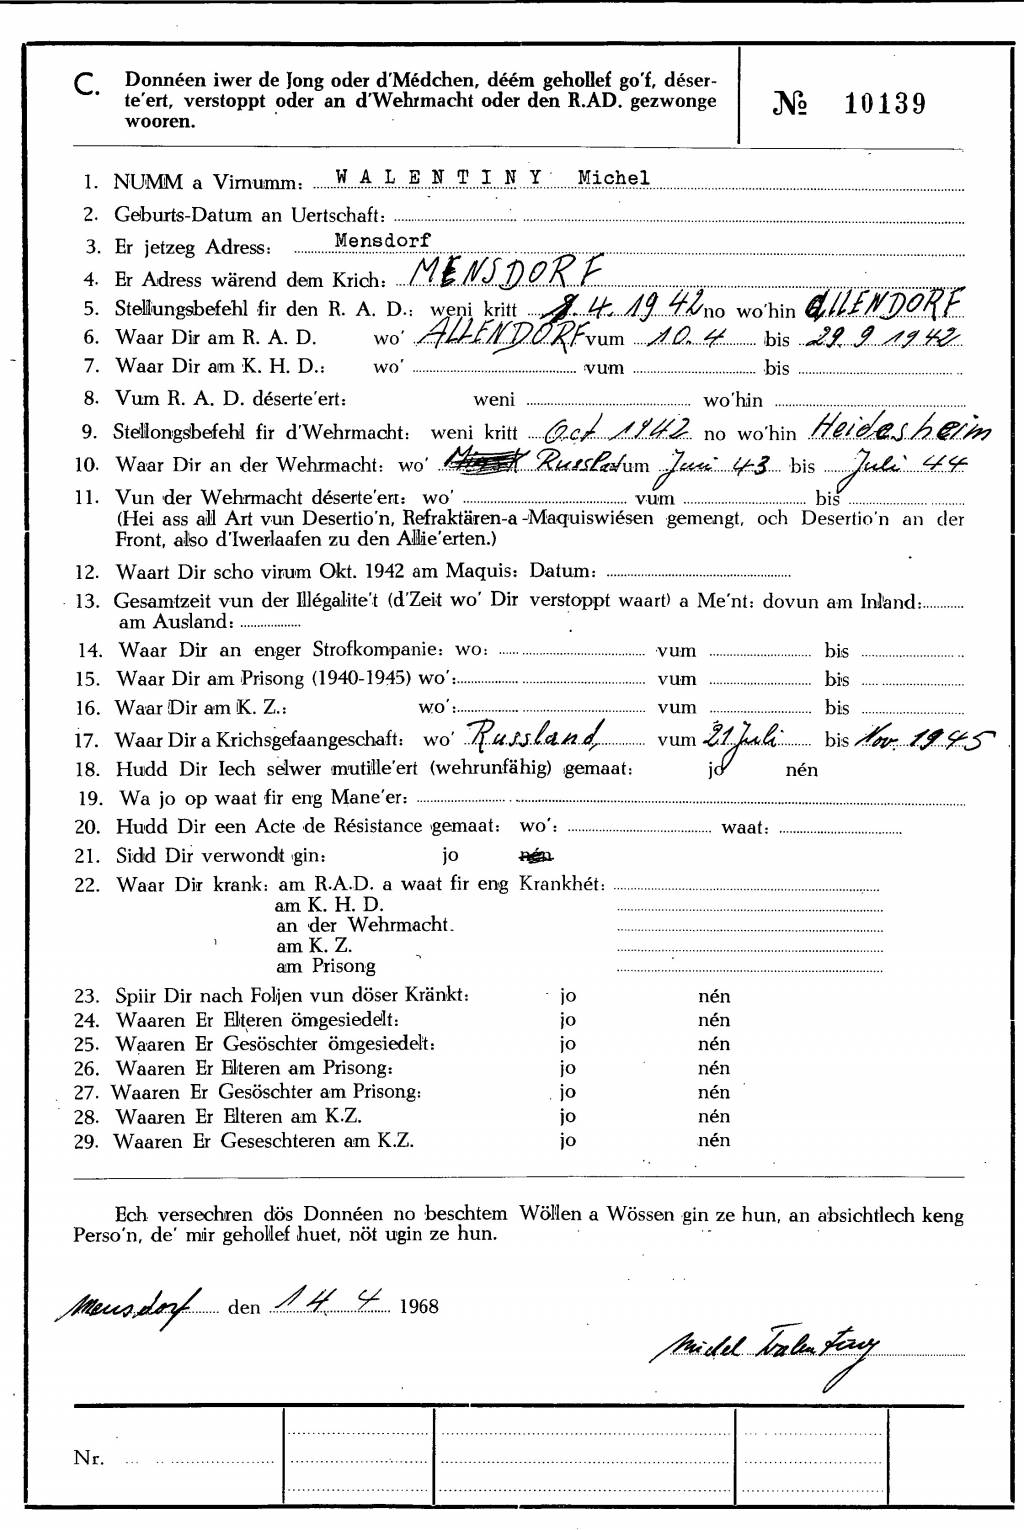 C. Donnéen iwer de Jong oder d'Médchen, déém gehollef go'f, déser-
te'ert, verstoppt oder an d'Wehrmacht oder den R.AD. gezwonge
wooren.
№ 10139
1. NUMM a Virnumm: WALENTINY Michel
2. Geburts-Datum an Uertschaft:
3. Er jetzeg Adress: Mensdorf
4. Er Adress wärend dem Krich: MENSDORF
5. Stellungsbefehl fir den R. A. D.: weni kritt 9.4.1942 no wo'hin ALLENDORF
6. Waar Dir am R. A. D. wo' ALLENDORF vum 10.4 bis 29.9 1942
7. Waar Dir am K. H. D.: wo' vum bis
8. Vum R. A. D. déserte'ert: weni wo'hin
9. Stellongsbefehl fir d'Wehrmacht: weni kritt Oct 1942 no wo'hin Heidesheim
10. Waar Dir an der Wehrmacht: wo' Russland vum Juni 43 bis Juli 44
11. Vun der Wehrmacht déserte'ert: wo' vum bis
(Hei ass all Art vun Desertio'n, Refraktären-a-Maquiswiésen gemengt, och Desertio'n an der
Front, also d'Iwerlaafen zu den Allie'erten.)
12. Waart Dir scho virum Okt. 1942 am Maquis: Datum:
13. Gesamtzeit vun der Illégalite't (d'Zeit wo' Dir verstoppt waart) a Me'nt: dovun am Inland:
am Ausland:
14. Waar Dir an enger Strofkompanie: wo: vum bis
15. Waar Dir am Prisong (1940-1945) wo': vum bis
16. Waar Dir am K. Z.: wo': vum bis
17. Waar Dir a Krichsgefaangeschaft: wo' Russland, vum 21 Juli bis Nov. 1945
18. Hudd Dir Iech selwer mutille'ert (wehrunfähig) gemaat: jo nén
19. Wa jo op waat fir eng Mane'er:
20. Hudd Dir een Acte de Résistance gemaat: wo': waat:
21. Sidd Dir verwondt gin: jo nén
22. Waar Dir krank: am R.A.D. a waat fir eng Krankhét:
am K. H. D.
an der Wehrmacht.
am K. Z.
am Prisong
23. Spiir Dir nach Foljen vun döser Kränkt: jo nén
24. Waaren Er Elteren ömgesiedelt: jo nén
25. Waaren Er Gesöschter ömgesiedelt: jo nén
26. Waaren Er Elteren am Prisong: jo nén
27. Waaren Er Gesöschter am Prisong: jo nén
28. Waaren Er Elteren am K.Z. jo nén
29. Waaren Er Geseschteren am K.Z. jo nén
Ech versechren dös Donnéen no beschtem Wöllen a Wössen gin ze hun, an absichtlech keng
Perso'n, de' mir gehollef huet, nöt ugin ze hun.
Mensdorf den 14.4 1968
Michel Walentiny
Nr.